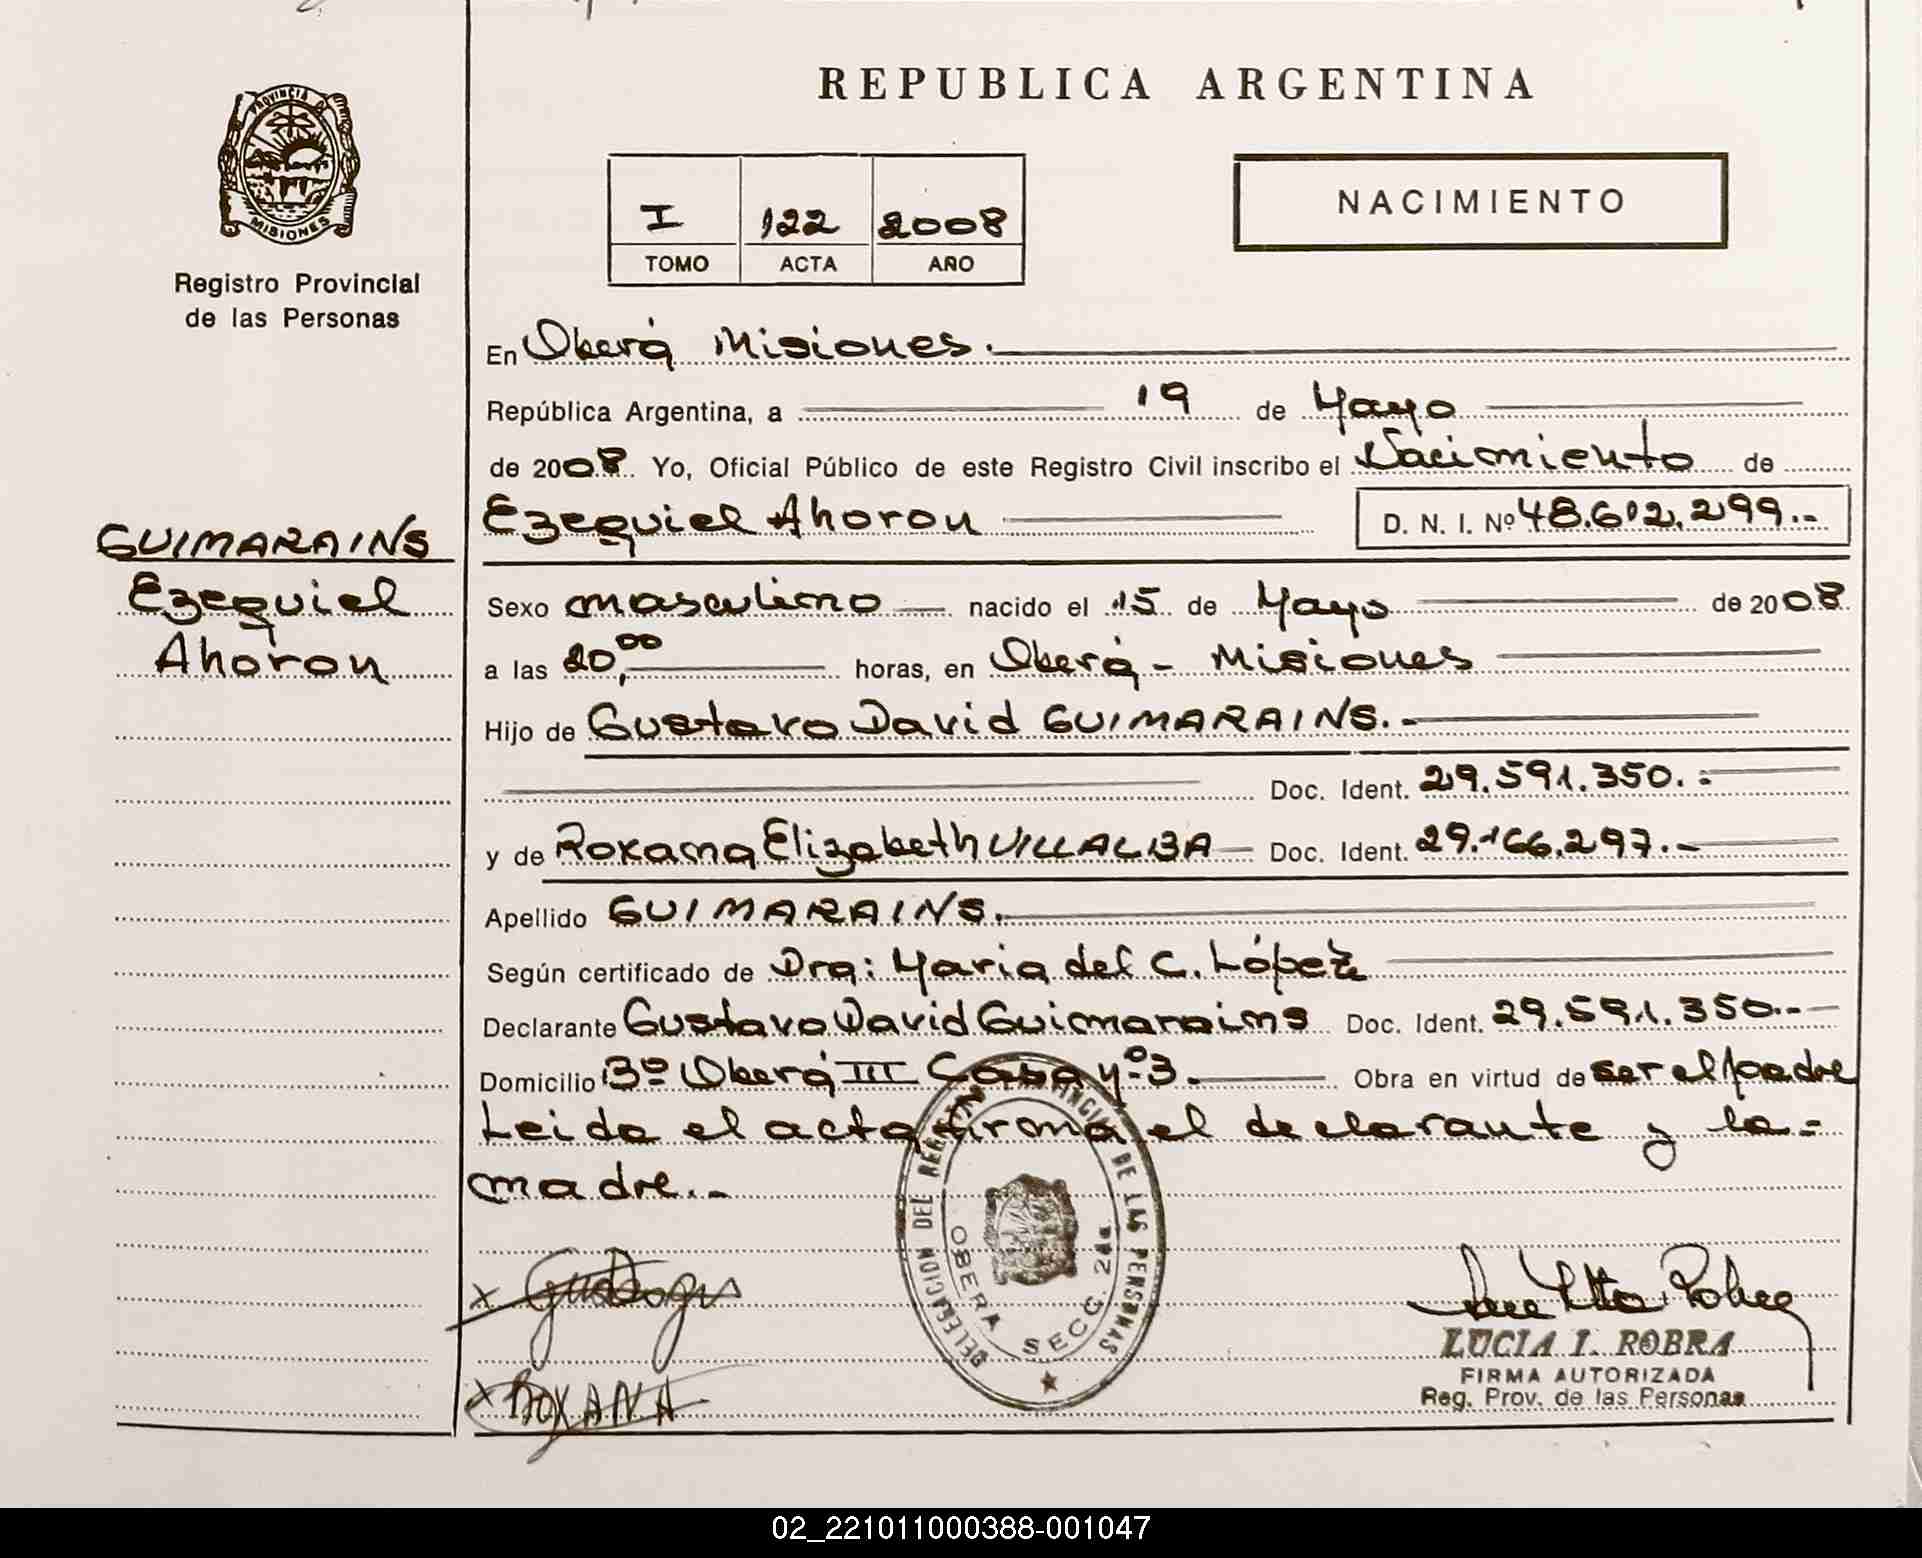 REPUBLICA ARGENTINA
PROVINCIA DE
MISIONES
Registro Provincial
de las Personas
I 122 2008
TOMO ACTA AÑO
NACIMIENTO
En Oberá Misiones.
República Argentina, a 19 de Mayo
de 2008. Yo, Oficial Público de este Registro Civil inscribo el Nacimiento de
Ezequiel Ahoron D. N. I. Nº 48.612.299.-
GUIMARAINS
Ezequiel
Ahoron
Sexo masculino nacido el 15 de Mayo de 2008
a las 20,00 horas, en Oberá - Misiones
Hijo de Gustavo David GUIMARAINS.-
Doc. Ident. 29.591.350.-
y de Roxana Elizabeth VILLALBA Doc. Ident. 29.166.297.-
Apellido GUIMARAINS.
Según certificado de Dra: Maria del C. López
Declarante Gustavo David Guimarains Doc. Ident. 29.591.350.-
Domicilio Bº Oberá III Casa Nº 3. Obra en virtud de ser el padre
Leida el acta firma el declarante y la-
madre.-
DELEGACION DEL REGISTRO PROVINCIAL DE LAS PERSONAS
OBERA SECC. 2da.
X
X ROXANA
LUCIA I. ROBRA
FIRMA AUTORIZADA
Reg. Prov. de las Personas
02_221011000388-001047